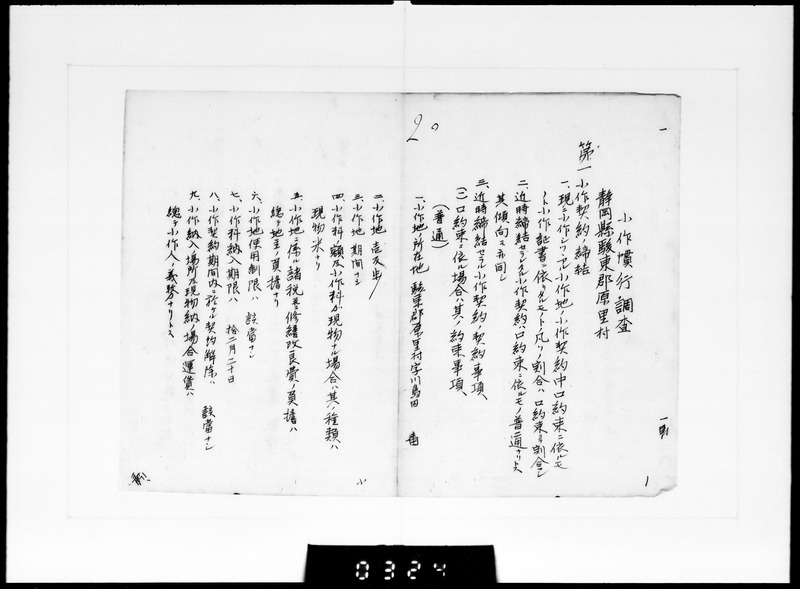 小作慣行調査
静岡縣駿東郡原里村
第一 小作契約ノ締結
一、現ニ小作シツヽアル小作地ノ小作契約中口約束ニ依ルモ
ノト小作証書ニ依ルモノト凡ソノ割合ハ口約束多割合シ
二、近時締結セラルヽ小作契約ハ口約束ニ依ルモノ普通ナリトス
其傾向モ亦同シ
三、近時締結セラル小作契約ノ契約事項、
(一)口約束ニ依ル場合ハ其ノ約束事項、
(普通)
一、小作地ノ所在地 駿東郡原里村字川島田
二、小作地
三、小作地 期間ナシ
四、小作料ノ額及小作料ガ現物ナル場合ハ其ノ種類ハ
現物米ナリ
五、小作地ニ係ル諸税並ニ修繕改良費ノ負擔ハ
総テ地主ノ負擔ナリ
六、小作地使用制限ハ 該當ナシ
七、小作料納入期限ハ 拾二月二十日
八、小作契約期間内ニ於ケル契約解除ハ 該當ナシ
九、小作納入ノ場所及現物納ノ場合運賃ハ
総テ小作人ノ義務ナリトス
0324